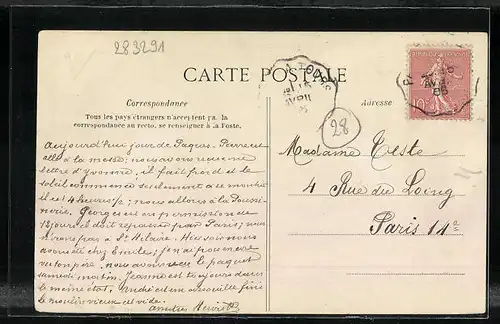 283291
CARTE POSTALE
Correspondance
Tous les pays étrangers n'acceptent pas la
correspondance au recto, se renseigner à la Poste.
Adresse
28
A TOURS
10
Aujourd'hui jour de Paques. Pierre est
allé à la messe, nous avons reçu une
lettre d'Yvonne, il fait froid et le
soleil commence seulement à se montrer
il est 4 heures ½, nous allons à la
Georges est en permission de
12 jours il doit repasser par Paris, nous
par à St Hilaire. Hier soir nous
avons été chez Emile, j'en ai
votre père, nous avons le paquet
samedi matin. Jeanne est toujours dans
le même état. André est en nouvelle
le moulin vieux est vide.
amitiés
Madame Teste
4 Rue du Loing
Paris 14e